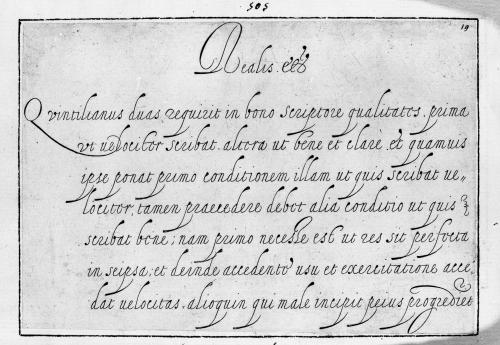 505
19
Realis. etc
Quintilianus duas, requirit in bono scriptore qualitates. prima
ut uelociter scribat. altera ut bene et clarè. et quamuis
ipse ponat primo conditionem illam ut quis scribat ue-
lociter, tamen praecedere debet alia conditio ut quis
scribat bene; nam primo necesse est ut res sit perfecta
in seipsa; et deinde accedente usu et exercitatione acce
dat uelocitas. alioquin qui male incipit peius progrediet